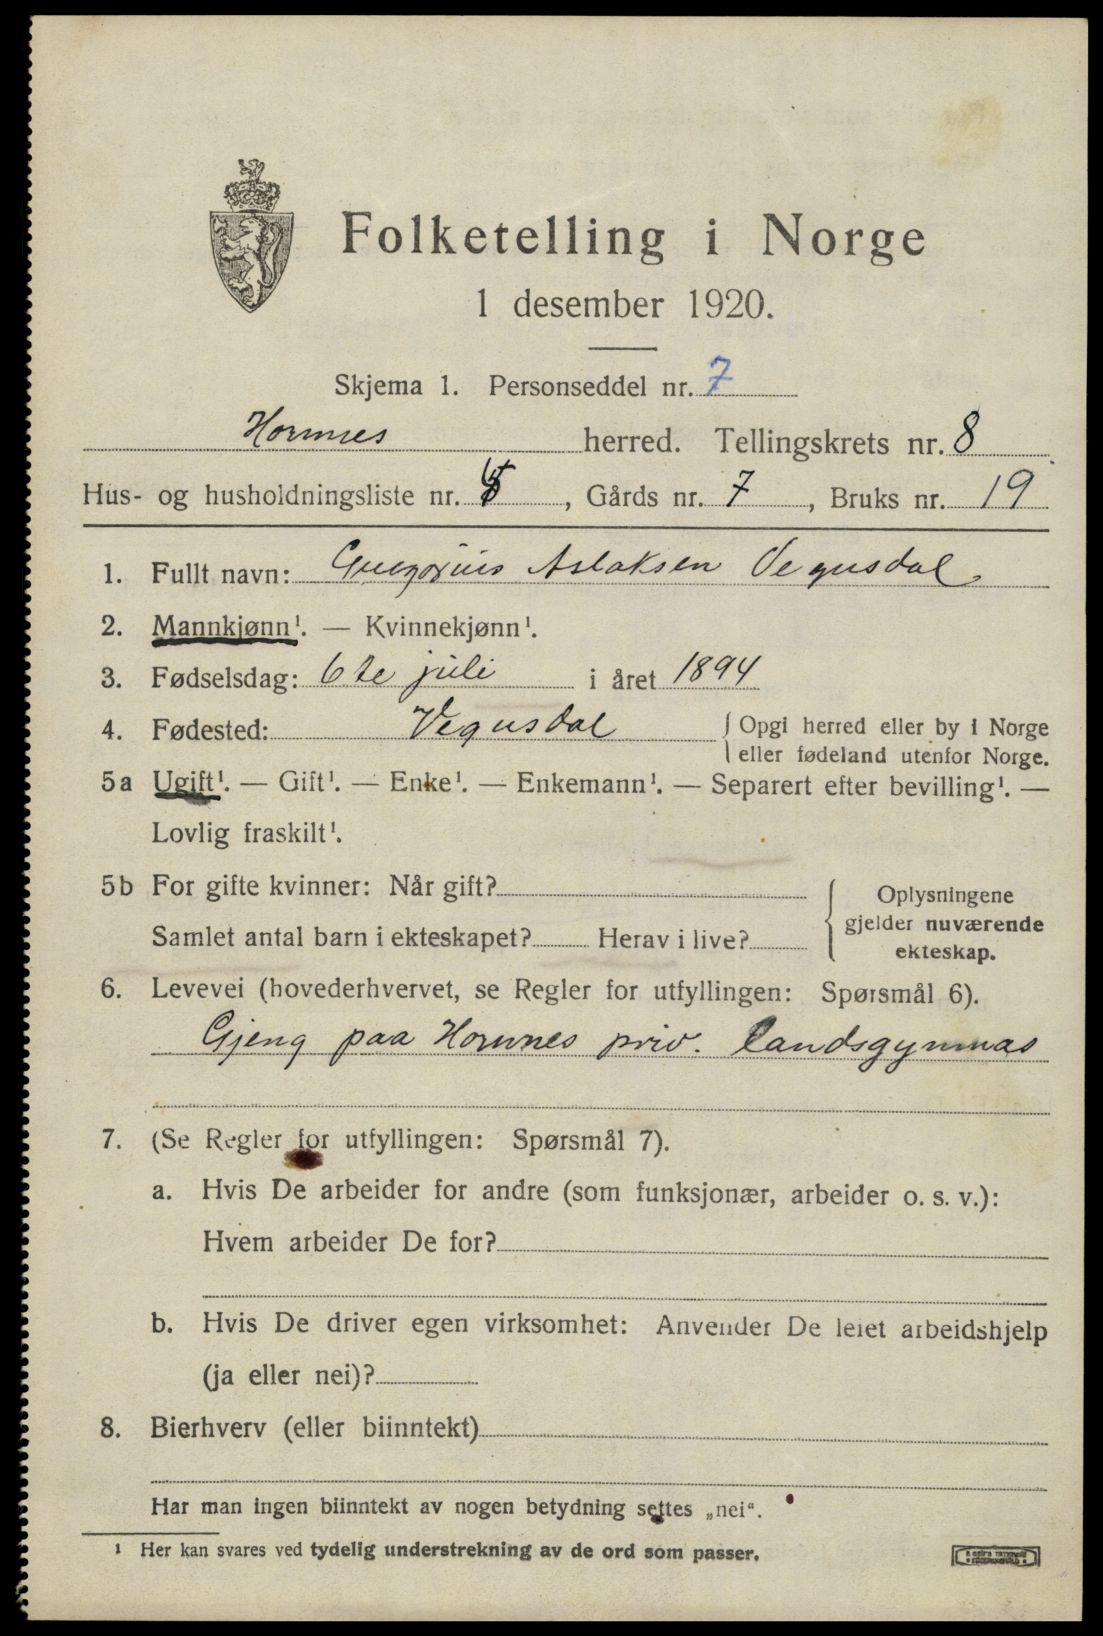 Folketelling i Norge
1 desember 1920.
Skjema 1. Personseddel nr. 7
Hornnes herred. Tellingskrets nr. 8
Hus- og husholdningsliste nr. , Gårds nr. 7, Bruks nr. 19
1. Fullt navn: Gregorius Aslaksen Vegusdal
2. Mannkjønn¹. — Kvinnekjønn¹.
3. Fødselsdag: 6te juli i året 1894
4. Fødested: Vegusdal { Opgi herred eller by i Norge
eller fødeland utenfor Norge.
5a Ugift¹. — Gift¹. — Enke¹. — Enkemann¹. — Separert efter bevilling¹. —
Lovlig fraskilt¹.
5b For gifte kvinner: Når gift?
Samlet antal barn i ekteskapet? Herav i live?
{ Oplysningene
gjelder nuværende
ekteskap.
6. Levevei (hovederhvervet, se Regler for utfyllingen: Spørsmål 6).
Gjeng paa Hornnes priv. landsgymnas
7. (Se Regler for utfyllingen: Spørsmål 7).
a. Hvis De arbeider for andre (som funksjonær, arbeider o. s. v.):
Hvem arbeider De for?
b. Hvis De driver egen virksomhet: Anvender De leiet arbeidshjelp
(ja eller nei)?
8. Bierhverv (eller biinntekt)
Har man ingen biinntekt av nogen betydning settes „nei“.
¹ Her kan svares ved tydelig understrekning av de ord som passer.